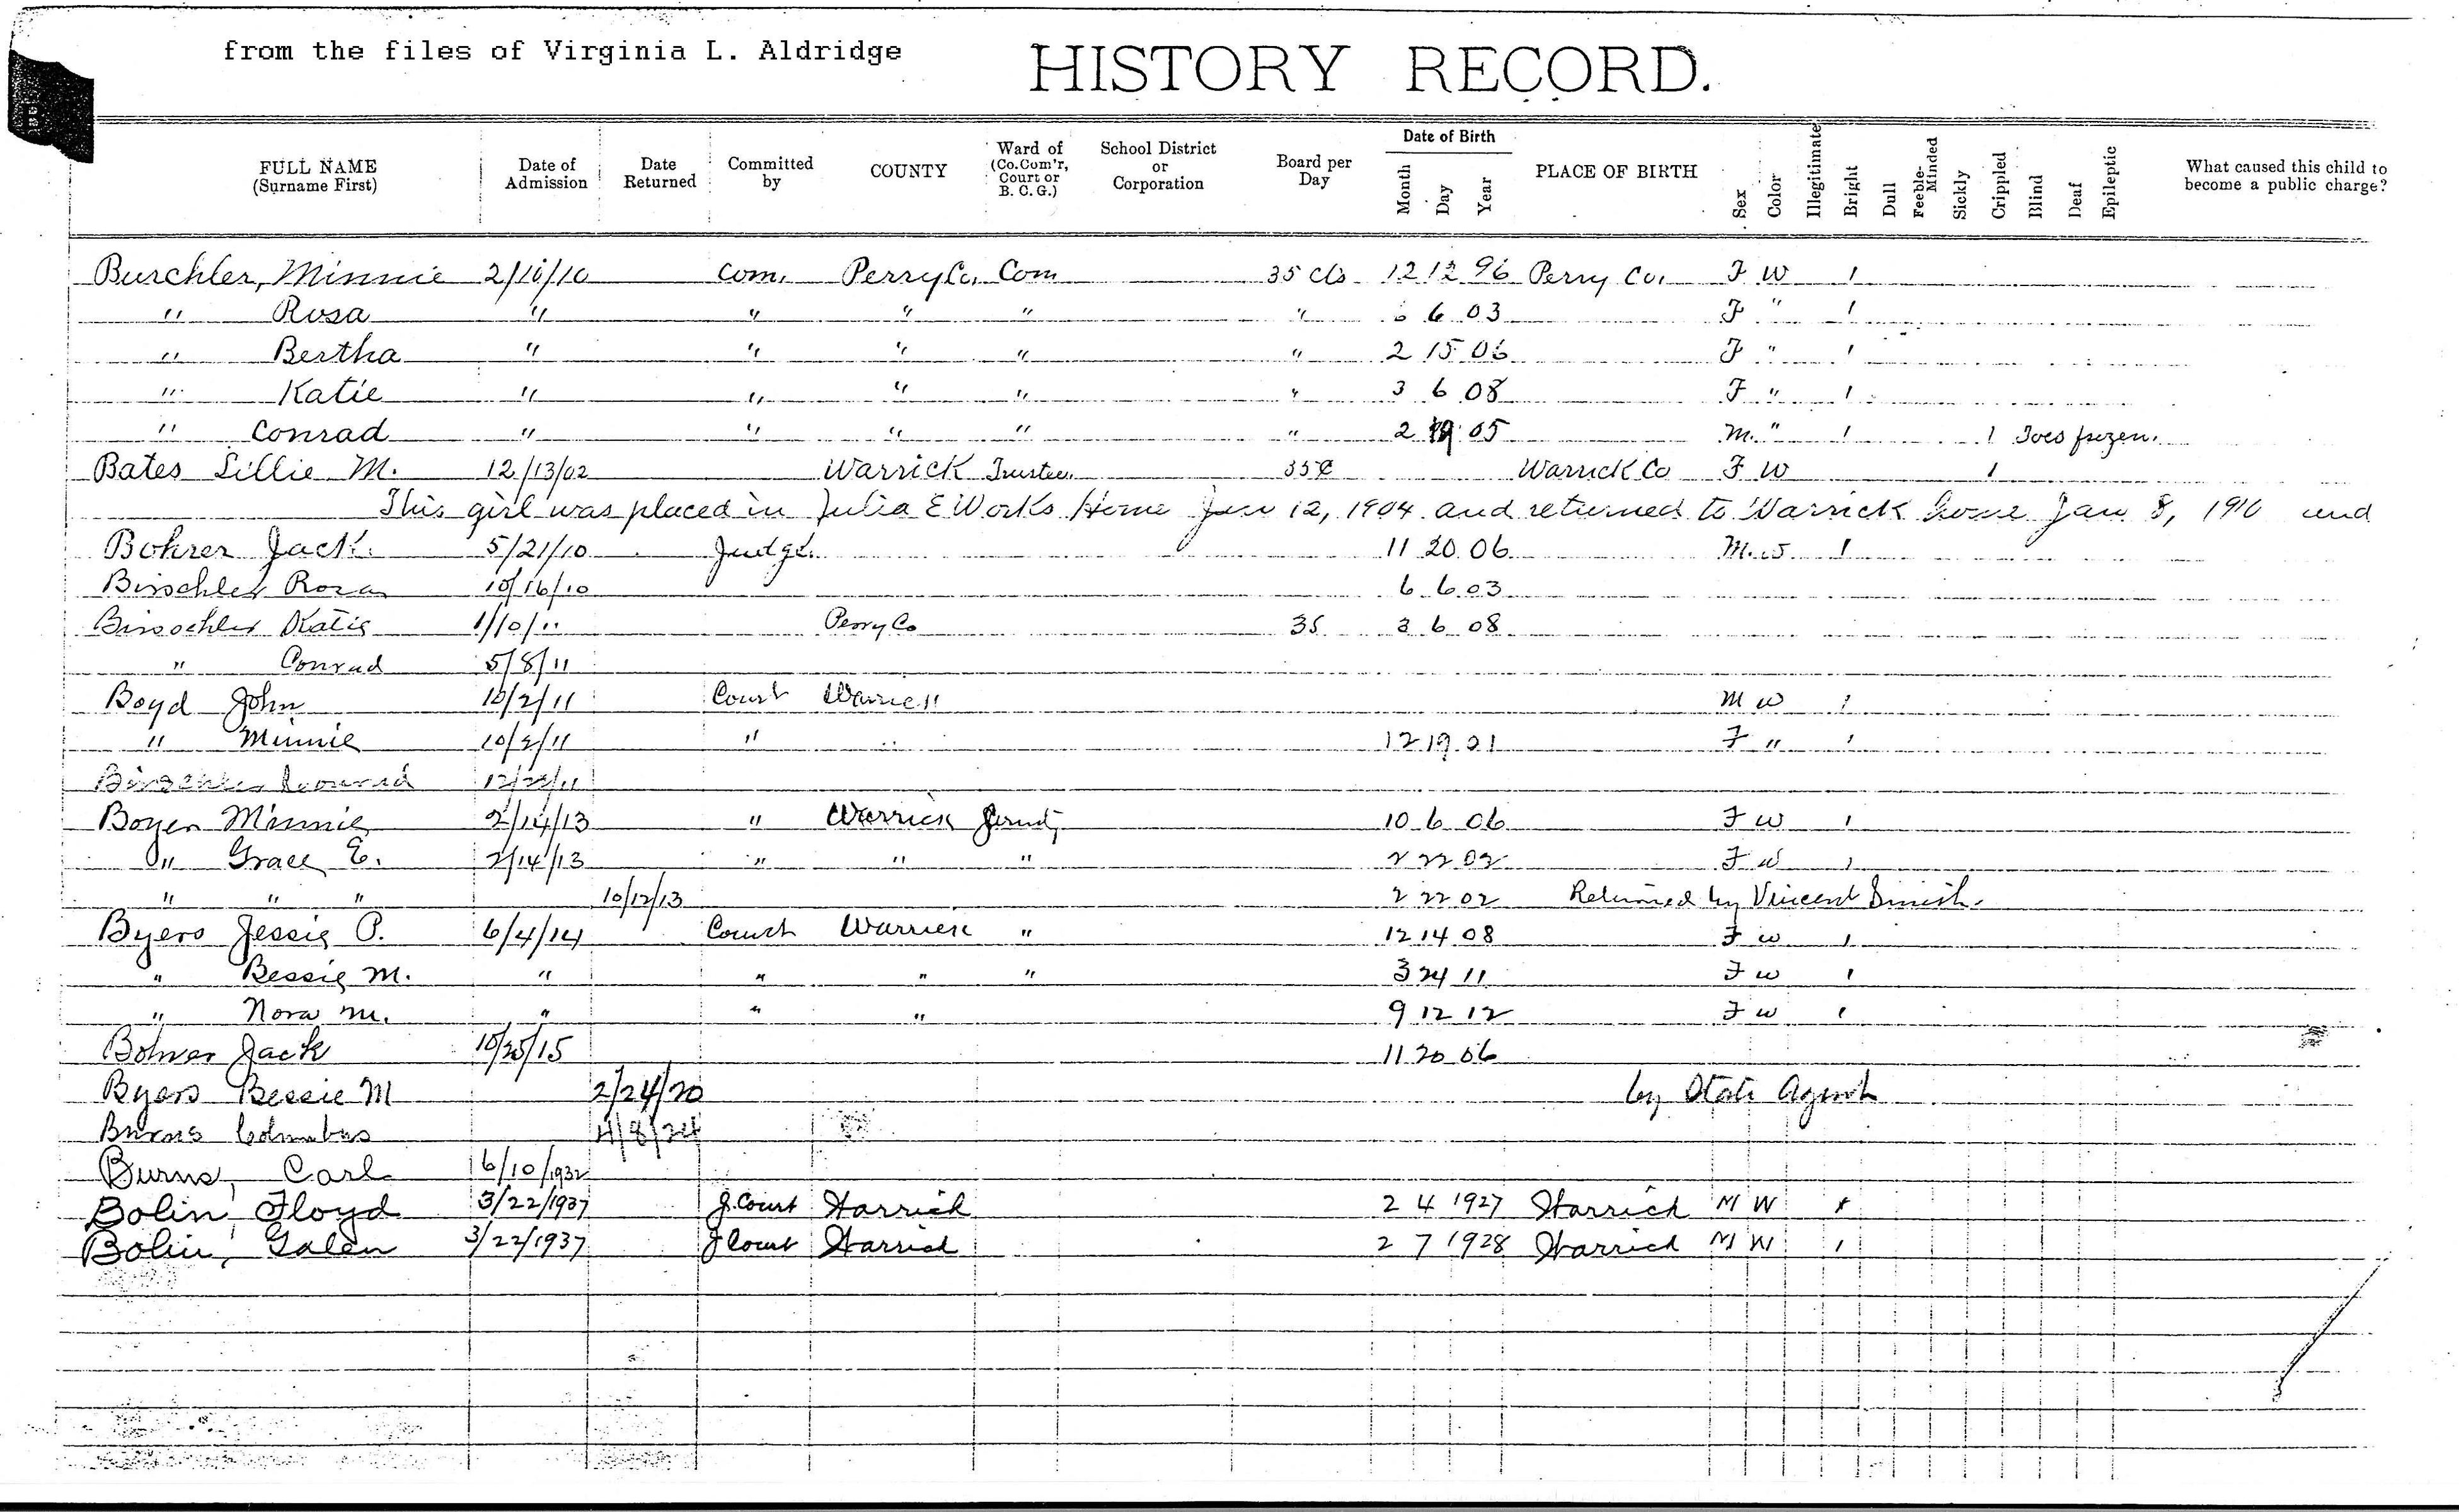 from the files of Virginia L. Aldridge
HISTORY RECORD.
FULL NAME (Surname First) Date of Admission Date Returned Committed by COUNTY Ward of (Co. Com'r, Court or B. C. G.) School District or Corporation Board per Day Date of Birth Month Day Year PLACE OF BIRTH Sex Color Illegitimate Bright Dull Feeble-Minded Sickly Crippled Blind Deaf Epileptic What caused this child to become a public charge?
Burchler, Minnie 2/10/10 Com. Perry Co. Com 35 cts 12 12 96 Perry Co. F W 1
" Rosa " " " " " 6 6 03 F " 1
" Bertha " " " " " 2 15 06 F " 1
" Katie " " " " " 3 6 08 F " 1
" Conrad " " " " " 2 05 M. " 1 1 Toes frozen.
Bates Lillie M. 12/13/02 Warrick Trustee 35¢ Warrick Co F W 1
This girl was placed in Julia E Works Home Jan 12, 1904 and returned to Warrick home Jan 8, 1910 and
Bohrer Jack. 5/21/10 Judge. 11 20 06 M. W 1
Birschler Rosa 10/16/10 6 6 03
Birschler Katie 1/10/11 Perry Co 35 3 6 08
" Conrad 5/8/11
Boyd John 10/2/11 Court Warrick M W 1
" Minnie 10/2/11 " " 12 19 01 F " 1
Birschler Conrad 12/11
Boyer Minnie 2/14/13 " Warrick 10 6 06 F W 1
" Grace E. 2/14/13 " " " 2 22 02 F W 1
" " " 10/12/13 2 22 02 Returned by Vincent Smith.
Byers Jessie P. 6/4/14 Court Warrick " 12 14 08 F W 1
" Bessie M. " " " " 3 24 11 F W 1
" Nora M. " " " 9 12 12 F W 1
Bohrer Jack 10/25/15 11 20 06
Byers Bessie M 2/24/20 by State Agent
Burns Columbus 4/8/24
Burns, Carl 6/10/1932
Bolin, Floyd 3/22/1937 J. Court Warrick 2 4 1927 Warrick M W 1
Bolin, Galen 3/22/1937 J Court Warrick 2 7 1928 Warrick M W 1